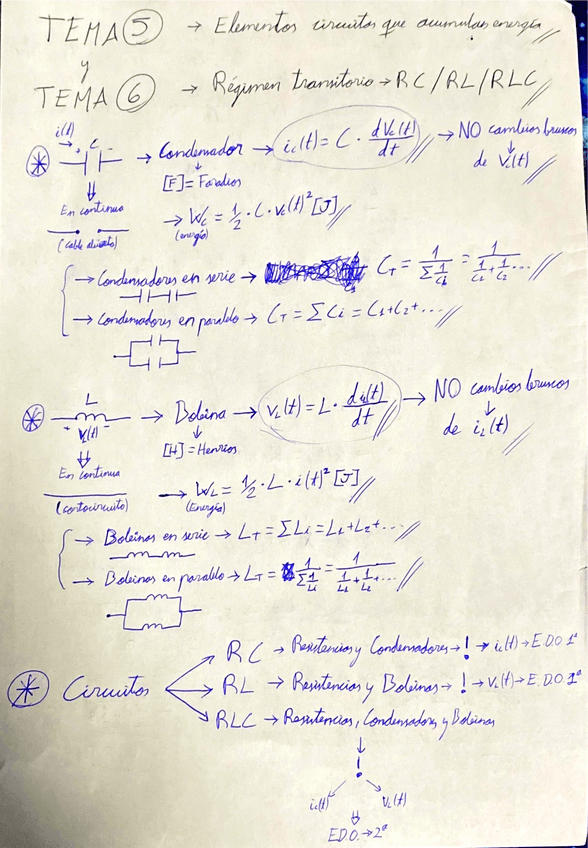 TEMA 5 → Elementos circuitos que acumulan energía
y
TEMA 6 → Régimen transitorio → RC/RL/RLC
i(t)
+ C -
→ Condensador → ic(t) = C · dVc(t)/dt → NO cambios bruscos
↓
de Vc(t)
[F] = Faradios
En continua
(cable abierto)
→ Wc = 1/2 · C · Vc(t)² [J]
(energía)
→ Condensadores en serie → CT = 1/Σ 1/Ci = 1/(1/C1 + 1/C2 + ...)
→ Condensadores en paralelo → CT = ΣCi = C1+C2+...
L
+ VL(t) -
→ Bobina → VL(t) = L · diL(t)/dt → NO cambios bruscos
↓
de iL(t)
[H] = Henrios
En continua
(cortocircuito)
→ WL = 1/2 · L · i(t)² [J]
(Energía)
→ Bobinas en serie → LT = ΣLi = L1+L2+...
→ Bobinas en paralelo → LT = 1/Σ 1/Li = 1/(1/L1 + 1/L2 + ...)
* Circuitos
RC → Resistencias y Condensadores → ! → ic(t) → E.D.O 1ª
RL → Resistencias y Bobinas → ! → VL(t) → E.D.O 1ª
RLC → Resistencias, Condensadores y Bobinas
↓
!
ic(t) VL(t)
⇓
E.D.O. → 2ª